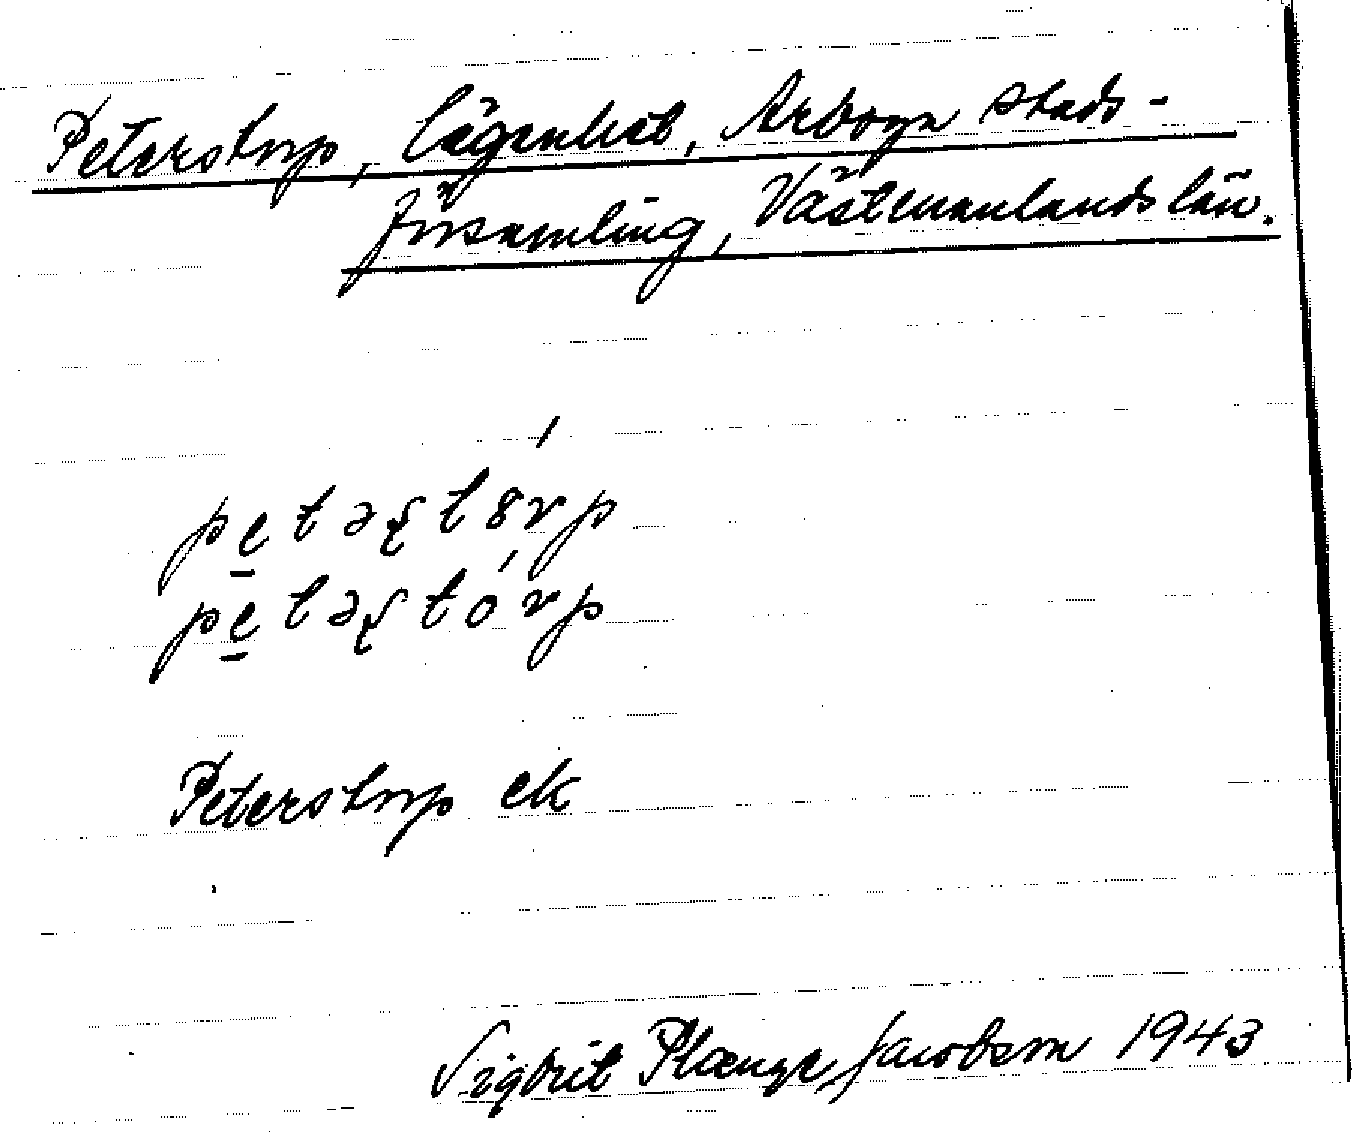 Peterstorp, lägenhet, Arboga stads-
församling, Västmanlands län.
pe̲təʂtȣ́rp
pe̲təʂtórp
Peterstorp ek
Sigbrit Plænge Jacobson 1943